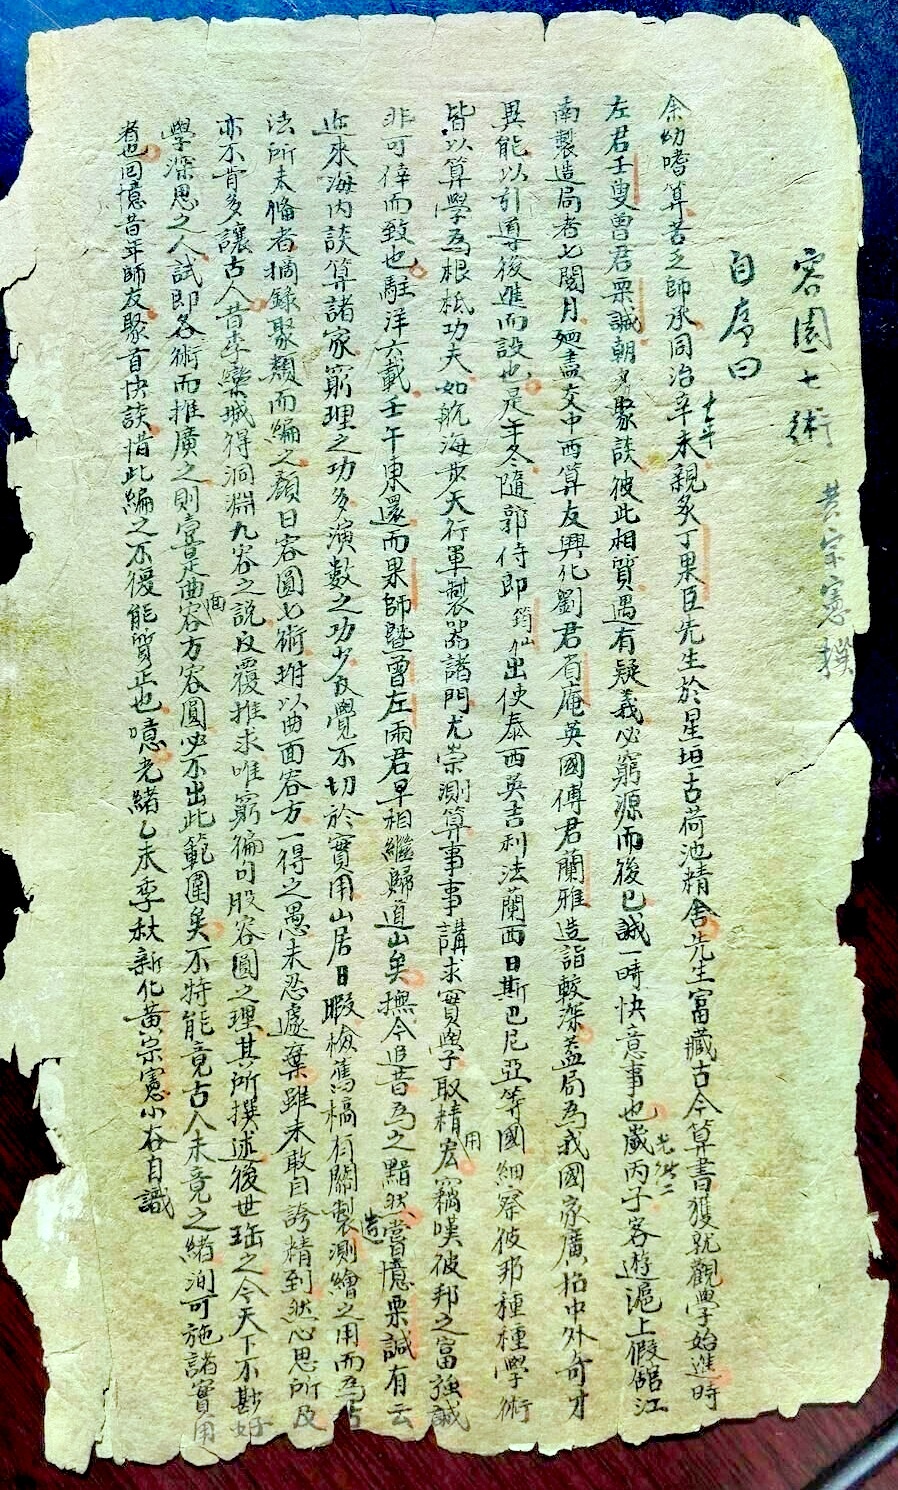 容圓七術
黃宗憲撰
自序曰
十年
余幼嗜算苦乏師承同治辛未親炙丁果臣先生於星垣古荷池精舍先生富藏古今算書獲就觀學始進時
光緒二
左君壬叟曾君栗諴朝夕聚談彼此相質遇有疑義必窮源而後已誠一時快意事也歲丙子客遊滬上假館江
南製造局者七閱月廼盡交中西算友興化劉君省庵英國傅君蘭雅造詣較深蓋局為我國家廣招中外奇才
異能以引導後進而設也是年冬隨郭侍郎筠仙出使泰西英吉利法蘭西日斯巴尼亞等國細察彼邦種種學術
皆以算學為根柢功夫如航海步天行軍製器諸門尤崇測算事事講求實學取精用宏竊嘆彼邦之富強誠
非可倖而致也駐洋六載壬午東還而果師暨曾左兩君早相繼歸道山矣撫今追昔為之黯然嘗憶栗諴有云
近來海內談算諸家窮理之功多演數之功少反覺不切於實用山居日暇檢舊槁有關製造測繪之用而為古
法所未備者摘錄聚類而編之顏曰容圓七術坿以曲面容方一得之愚未忍遽棄雖未敢自誇精到然心思所及
亦不肯多讓古人昔李欒城得洞淵九容之說反覆推求唯窮徧句股容圓之理其所撰述後世珤之今天下不尠好
學深思之人試即各術而推廣之則壹是曲面容方容圓必不出此範圍矣不特能竟古人未竟之緒洵可施諸實用
者也回憶昔年師友聚首快談惜此編之不復能質正也噫光緒乙未季秋新化黃宗憲小谷自識